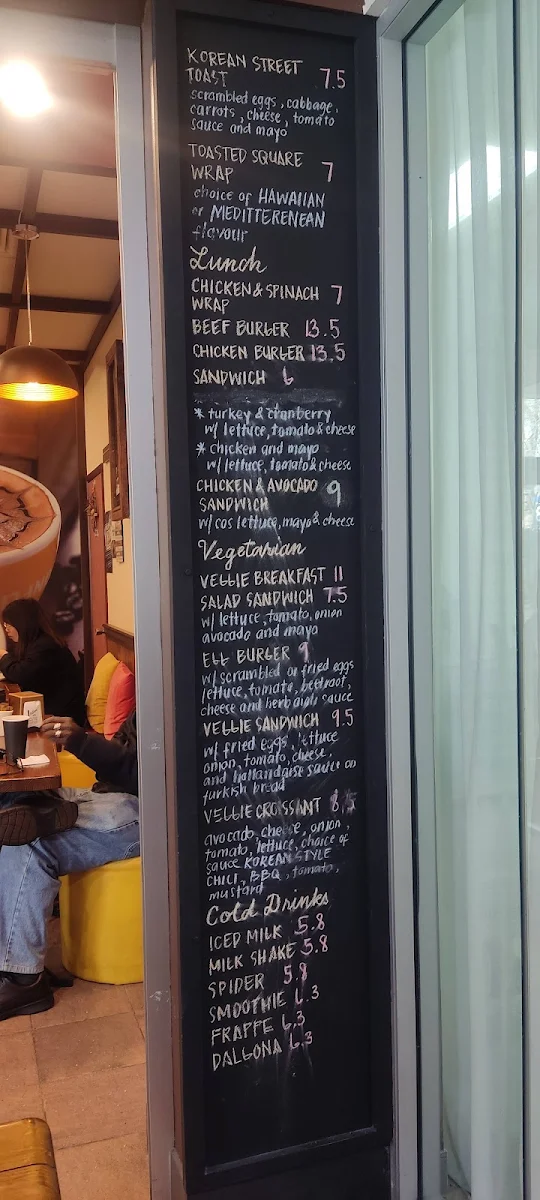 KOREAN STREET
TOAST 7.5
scrambled eggs, cabbage,
carrots, cheese, tomato
sauce and mayo
TOASTED SQUARE
WRAP 7
choice of HAWAIIAN
or MEDITTERENEAN
flavour
Lunch
CHICKEN & SPINACH 7
WRAP
BEEF BURGER 13.5
CHICKEN BURGER 13.5
SANDWICH 6
* turkey & cranberry
w/ lettuce, tomato & cheese
* chicken and mayo
w/ lettuce, tomato & cheese
CHICKEN & AVOCADO 9
SANDWICH
w/ cos lettuce, mayo & cheese
Vegetarian
VEGGIE BREAKFAST 11
SALAD SANDWICH 7.5
w/ lettuce, tomato, onion
avocado and mayo
EGG BURGER 9
w/ scrambled or fried eggs
lettuce, tomato, beetroot,
cheese and herb aioli sauce
VEGGIE SANDWICH 9.5
w/ fried eggs, lettuce
onion, tomato, cheese,
and hollandaise sauce on
turkish bread
VEGGIE CROISSANT 8.5
avocado, cheese, onion,
tomato, lettuce, choice of
sauce KOREAN STYLE
CHILI, BBQ, tomato,
mustard
Cold Drinks
ICED MILK 5.8
MILK SHAKE 5.8
SPIDER 5.8
SMOOTHIE 6.3
FRAPPE 6.3
DALGONA 6.3